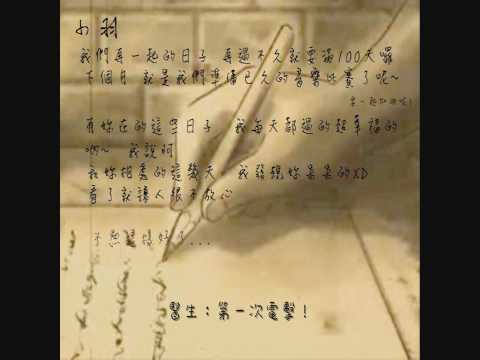 小羽
我們再一起的日子 再過不久就要滿100天囉
下個月 就是我們準備已久的音樂比賽了呢~
要一起加油唷!
有妳在的這些日子 我每天都過的超幸福的
喲~ 我說阿
我妳相處的這幾天 我發現妳呆呆的XD
看了就讓人很不放心
不然
醫生:第一次電擊!